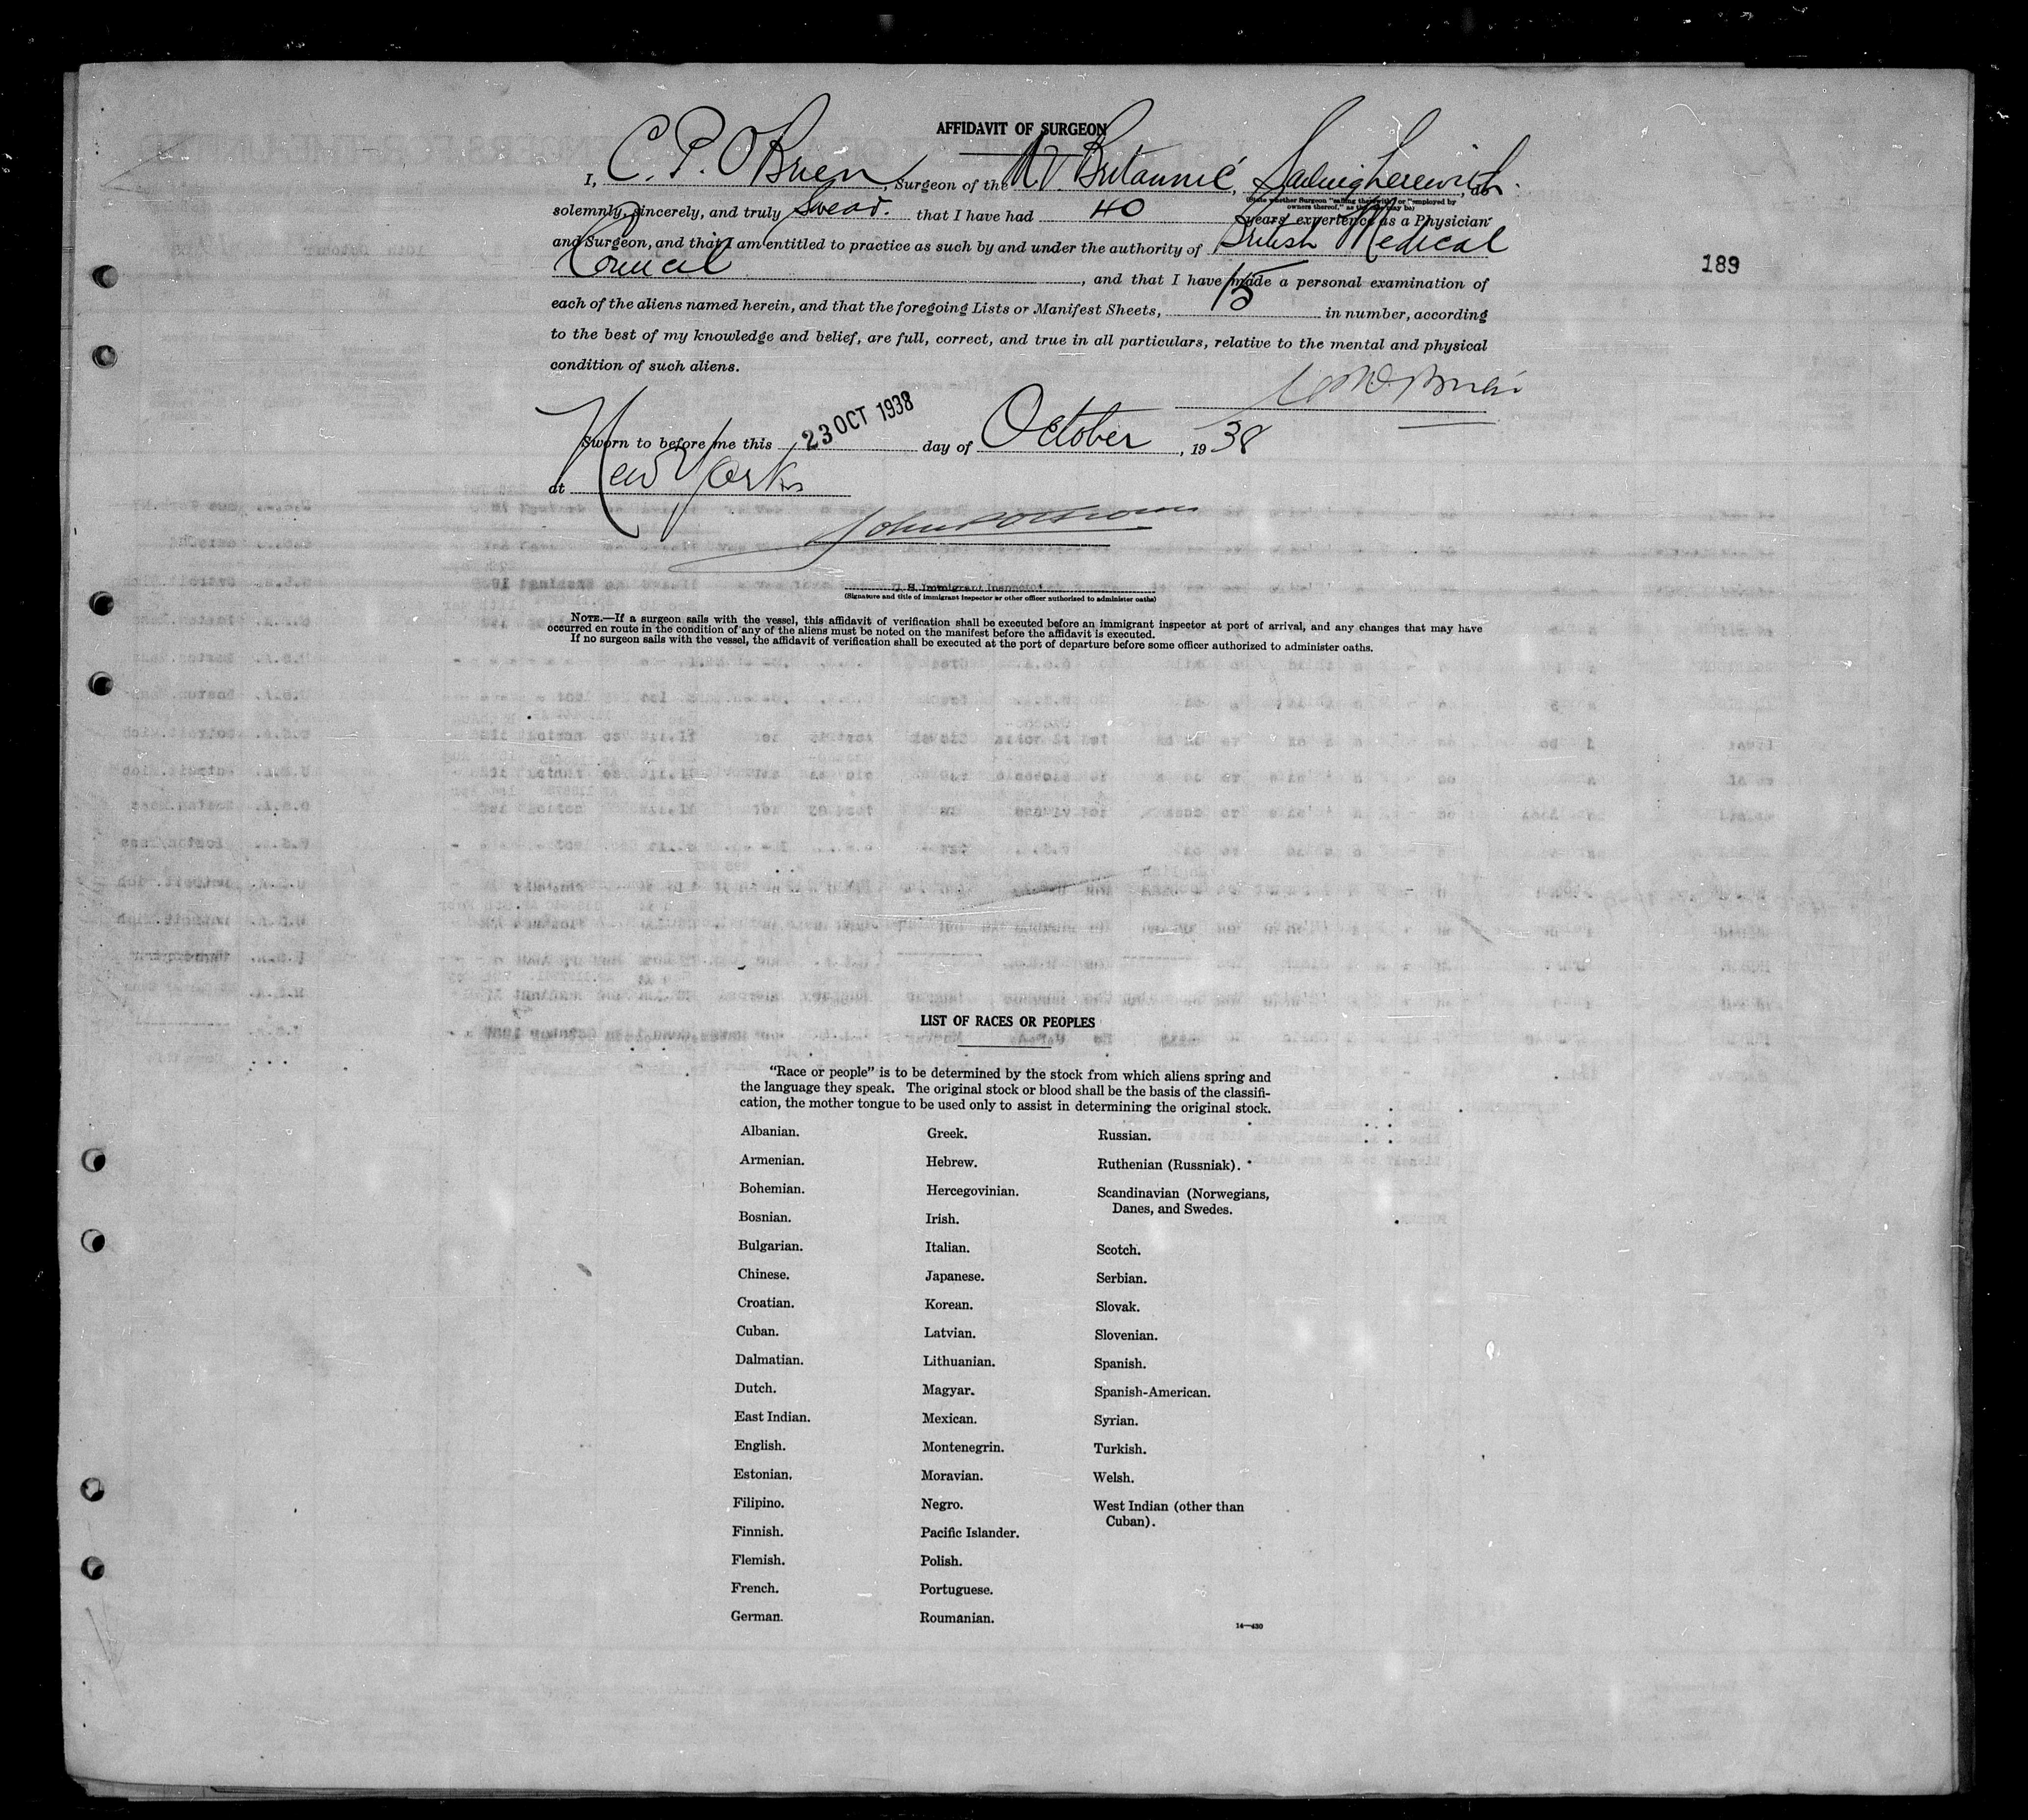 AFFIDAVIT OF SURGEON
I, C. P. O'Brien, Surgeon of the M.V. Britannic, Sailing therewith, do
(State whether Surgeon "sailing therewith" or "employed by owners thereof," as the case may be)
solemnly, sincerely, and truly swear. that I have had 40 years' experience as a Physician
and Surgeon, and that I am entitled to practice as such by and under the authority of British Medical
Council, and that I have made a personal examination of
each of the aliens named herein, and that the foregoing Lists or Manifest Sheets, 15 in number, according
to the best of my knowledge and belief, are full, correct, and true in all particulars, relative to the mental and physical
condition of such aliens.
189
Sworn to before me this 23 OCT 1938 day of October, 1938
at New York
U. S. Immigrant Inspector
(Signature and title of immigrant inspector or other officer authorized to administer oaths)
NOTE.—If a surgeon sails with the vessel, this affidavit of verification shall be executed before an immigrant inspector at port of arrival, and any changes that may have
occurred en route in the condition of any of the aliens must be noted on the manifest before the affidavit is executed.
If no surgeon sails with the vessel, the affidavit of verification shall be executed at the port of departure before some officer authorized to administer oaths.
LIST OF RACES OR PEOPLES
"Race or people" is to be determined by the stock from which aliens spring and
the language they speak. The original stock or blood shall be the basis of the classifi-
cation, the mother tongue to be used only to assist in determining the original stock.
Albanian.
Armenian.
Bohemian.
Bosnian.
Bulgarian.
Chinese.
Croatian.
Cuban.
Dalmatian.
Dutch.
East Indian.
English.
Estonian.
Filipino.
Finnish.
Flemish.
French.
German.
Greek.
Hebrew.
Hercegovinian.
Irish.
Italian.
Japanese.
Korean.
Latvian.
Lithuanian.
Magyar.
Mexican.
Montenegrin.
Moravian.
Negro.
Pacific Islander.
Polish.
Portuguese.
Roumanian.
Russian.
Ruthenian (Russniak).
Scandinavian (Norwegians,
Danes, and Swedes.
Scotch.
Serbian.
Slovak.
Slovenian.
Spanish.
Spanish-American.
Syrian.
Turkish.
Welsh.
West Indian (other than
Cuban).
14—430